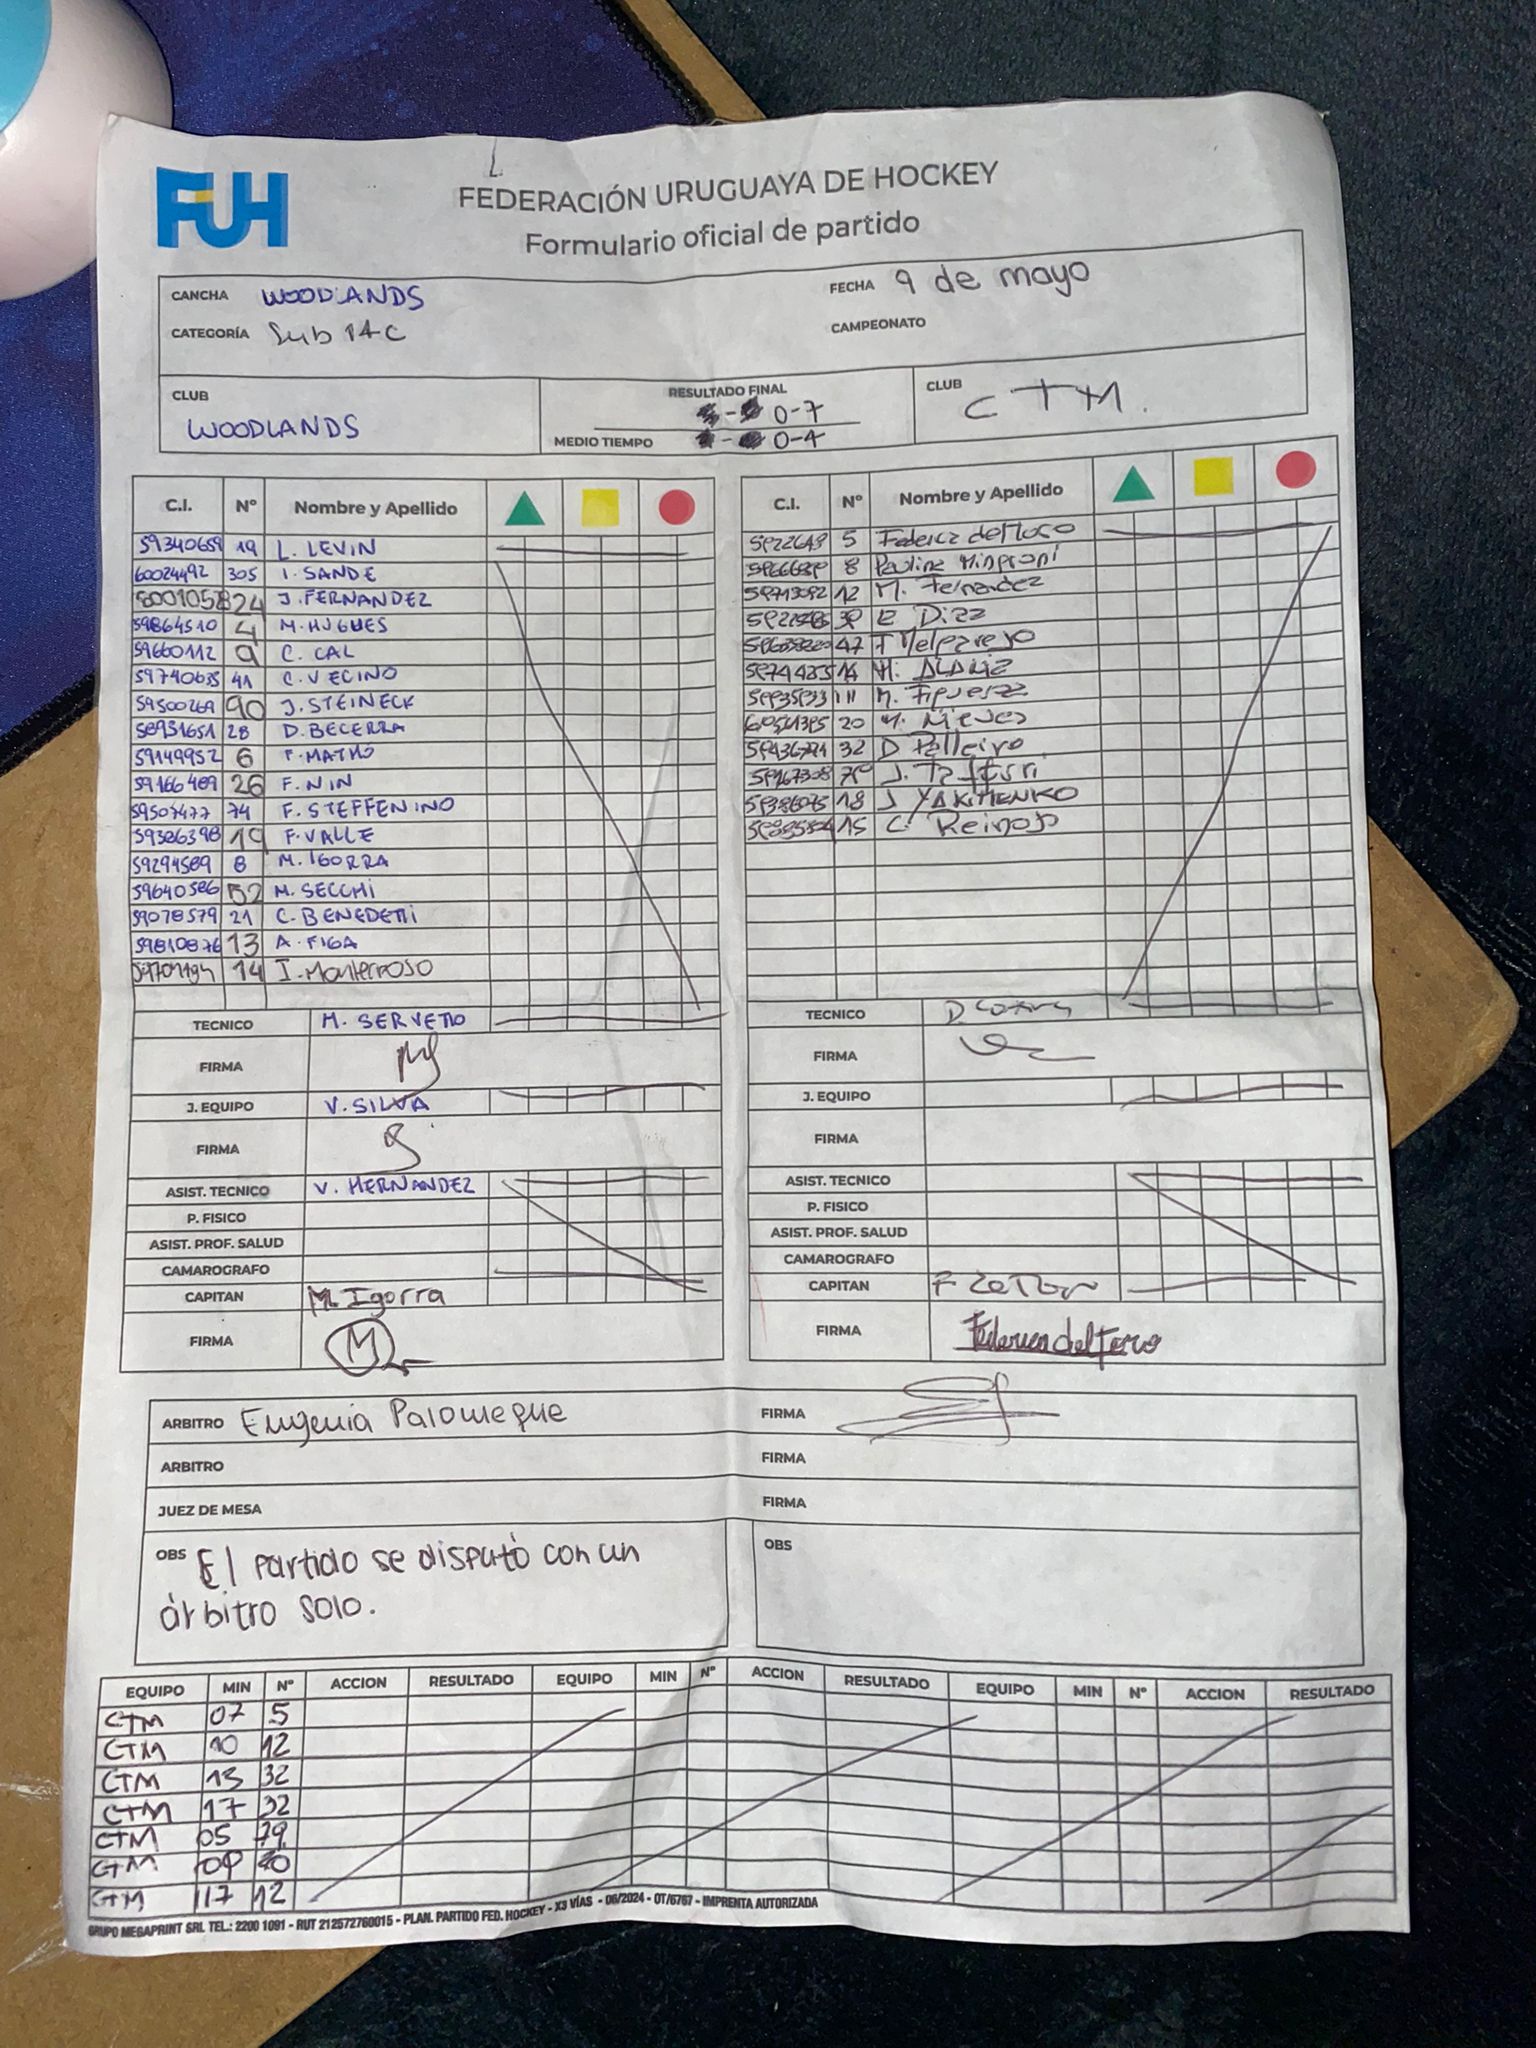 FUH
FEDERACIÓN URUGUAYA DE HOCKEY
Formulario oficial de partido
CANCHA WOODLANDS
FECHA 9 de mayo
CATEGORÍA Sub 14 C
CAMPEONATO
CLUB WOODLANDS
RESULTADO FINAL 0-7
MEDIO TIEMPO 0-4
CLUB CTM.
C.I. Nº Nombre y Apellido
59340659 19 L. LEVIN
60024492 305 I. SANDE
24 J. FERNANDEZ
59864510 4 M. HUGUES
59660112 9 C. CAL
59740635 41 C. VECINO
59500269 90 J. STEINECK
58931651 28 D. BECERRA
59149952 6 F. MATHÓ
59166489 26 F. NIN
59507477 74 F. STEFFENINO
59386398 19 F. VALLE
59294589 8 M. IGORRA
59640586 52 M. SECCHI
59078579 21 C. BENEDETTI
59810876 13 A. FIGA
14 I. Monterroso
TECNICO M. SERVETTO
FIRMA
J. EQUIPO V. SILVA
FIRMA
ASIST. TECNICO V. HERNANDEZ
P. FISICO
ASIST. PROF. SALUD
CAMAROGRAFO
CAPITAN M. Igorra
FIRMA M
C.I. Nº Nombre y Apellido
5 Federica del Toro
8 Paulina
12 M. Fernandez
E Diaz
47 Melgarejo
M.
11 M. Figueroa
20 M. Nieves
32 D Pelleiro
J.
18 J YAKIMENKO
15 C. Reinoso
TECNICO D.
FIRMA
J. EQUIPO
FIRMA
ASIST. TECNICO
P. FISICO
ASIST. PROF. SALUD
CAMAROGRAFO
CAPITAN F
FIRMA Federica del Toro
ARBITRO Eugenia Palomeque FIRMA
ARBITRO FIRMA
JUEZ DE MESA FIRMA
OBS El partido se disputó con un
árbitro solo.
OBS
EQUIPO MIN Nº ACCION RESULTADO EQUIPO MIN Nº ACCION RESULTADO EQUIPO MIN Nº ACCION RESULTADO
CTM 07 5
CTM 10 12
CTM 13 32
CTM 17 32
CTM 05 79
CTM
CTM 17 12
GRUPO MEGAPRINT SRL TEL.: 2200 1091 - RUT 212572760015 - PLAN. PARTIDO FED. HOCKEY - X3 VÍAS - 06/2024 - OT/6767 - IMPRENTA AUTORIZADA